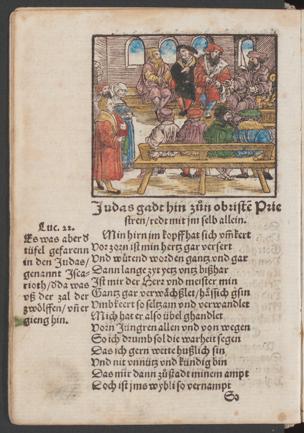 Judas gadt hin zůn obristē Prie
stren / redt mit jm selb allein.
Luc. 22.
Es was aber d̕
tüfel gefaren
in den Judas /
genannt Jsca-
rioth / dda was
vß der zal der
zwölffen / vñ
gieng hin.
Min hirn im kopff hat sich vmkert
Vor zorn ist min hertz gar versert
Vnd wütend worden gantz vnd gar
Dann lange zyt yetz vntz bißhar
Jst mir der Herr vnd meister min
Gantz gar verwächßlet / hässich gsin
Vmbkeert so seltzam vnd verwandlet
Mich hat er also übel ghandlet
Vorn Jüngren allen vnd von wegen
So ich drumb sol die warheit segen
Das ich gern werte hußlich sin
Vnd nit vnnütz vnd kündig bin
Das mir dann zůstadt minem ampt
Doch ist jms wybli so vernampt
So